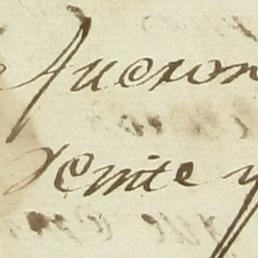 fueron
veinte y